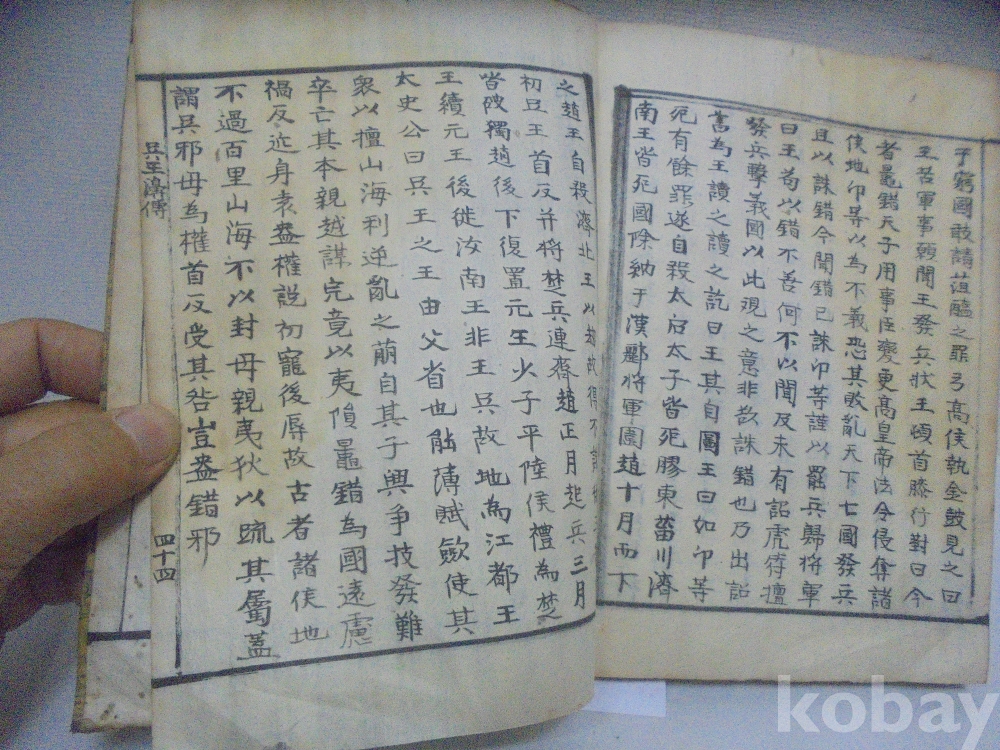 子窮國敢請葅醢之罪弓高侯執金鼓見之曰
王苦軍事願聞王發兵狀王頓首膝行對曰今
者鼂錯天子用事臣變更高皇帝法令侵奪諸
侯地卬等以為不義恐其敗亂天下七國發兵
且以誅錯今聞錯已誅卬等謹以罷兵歸將軍
曰王苟以錯不善何不以聞及未有詔虎符擅
發兵擊義國以此觀之意非欲誅錯也乃出詔
書為王讀之讀之訖曰王其自圖王曰如卬等
死有餘罪遂自殺太后太子皆死膠東菑川濟
南王皆死國除納于漢酈將軍圍趙十月而下
之趙王自殺濟北王以劫故得不誅
初吳王首反并將楚兵連齊趙正月起兵三月
皆破獨趙後下復置元王少子平陸侯禮為楚
王續元王後徙汝南王非王吳故地為江都王
太史公曰吳王之王由父省也能薄賦歛使其
衆以擅山海利逆亂之萌自其子興爭技發難
卒亡其本親越謀宗竟以夷隕鼂錯為國遠慮
禍反近身袁盎權說初寵後辱故古者諸侯地
不過百里山海不以封毋親夷狄以疏其屬蓋
謂吳邪毋為權首反受其咎豈盎錯邪
吳王濞傳
四十四
kobay